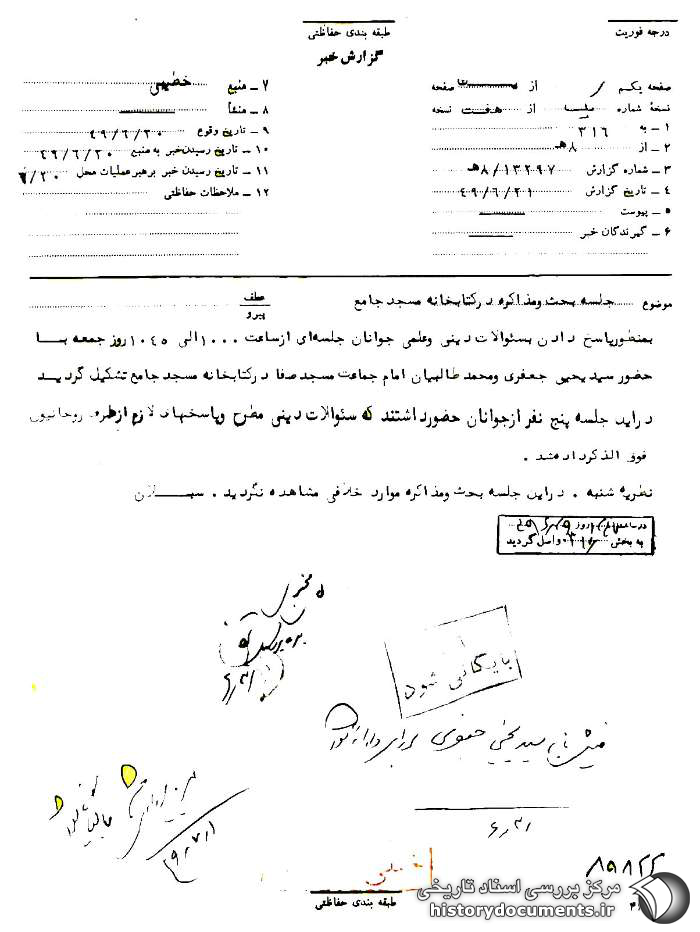 درجه فوریت
طبقه بندی حفاظتی
گزارش خبر
صفحه یکم از صفحه
نسخهٔ شماره از هفت نسخه
۱ – به ۳۱۶
۲ – از ۸هـ
۳ – شماره گزارش ۸/۱۳۲۹۷هـ
۴ – تاریخ گزارش ۴۹/۶/۲۱
۵ – پیوست
۶ – گیرندگان خبر
۷ – منبع خطیبی
۸ – منشأ
۹ – تاریخ وقوع ۴۹/۶/۲۰
۱۰ – تاریخ رسیدن خبر به منبع ۴۹/۶/۲۰
۱۱ – تاریخ رسیدن خبر برهبر عملیات محل ۶/۲۰
۱۲ – ملاحظات حفاظتی
موضوع جلسه بحث ومذاکره درکتابخانه مسجد جامع
عطف
پیرو
بمنظورپاسخ دادن بسئوالات دینی وعلمی جوانان جلسه‌ای ازساعت ۱۰۰۰الی ۱۰۴۵روز جمعه بــا
حضور سید یحیی جعفری ومحمد طالبیان امام جماعت مسجد صفا درکتابخانه مسجد جامع تشکیل گردیـد
دراین جلسه پنج نفر ازجوانان حضورداشتند که سئوالات دینی مطرح وپاسخهای لازم ازطرف روحانیون
فوق الذکرداده شد .
نظریه شنبه . دراین جلسه بحث ومذاکره موارد خلافی مشاهده نگردید . سبـــلان
روز
به بخش ۳۱۶ واصل گردید
بایگانی شود
سید یحیی جعفری
۶/۳۱
۶/۳۱
۹/۷/۱
۸۹۸۲۲
طبقه بندی حفاظتی
مرکز بررسی اسناد تاریخی
historydocuments.ir